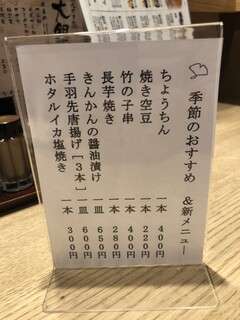 季節のおすすめ
&新メニュー
ちょうちん 一本 400円
焼き空豆 一本 220円
竹の子串 一本 400円
長芋焼き 一本 280円
きんかんの醤油漬け 一皿 650円
手羽先唐揚げ[3本] 一皿 600円
ホタルイカ塩焼き 一本 300円